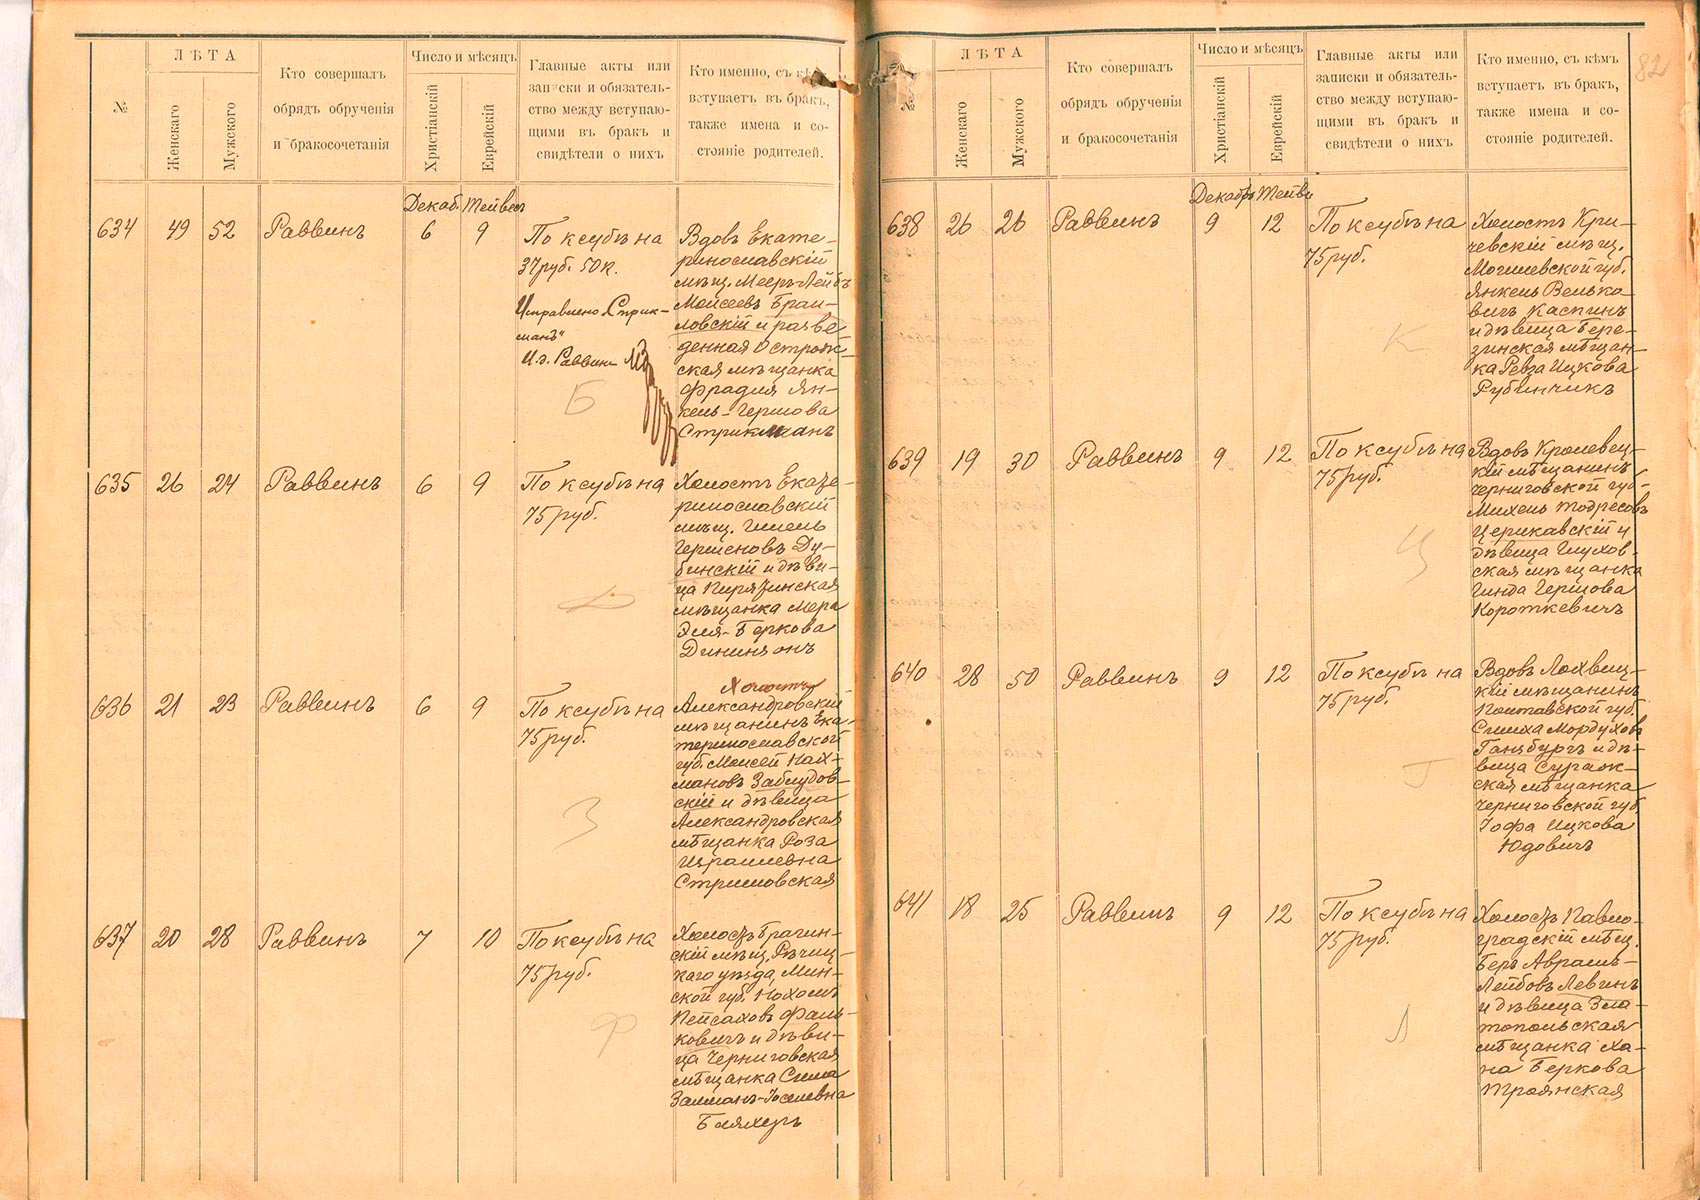 №
ЛѢТА
Женскаго
Мужского
Кто совершалъ
обрядъ обрученія
и бракосочетанія
Число и мѣсяцъ
Христіанскій
Еврейскій
Главные акты или
записки и обязатель-
ство между вступаю-
щими въ бракъ и
свидѣтели о нихъ
Кто именно, съ кѣмъ
вступаетъ въ бракъ,
также имена и со-
стояніе родителей.
Декаб. Тейвесъ
634 49 52 Раввинъ 6 9
По ксубѣ на
37 руб. 50 к.
Исправлено „Стрик-
манъ"
И.д. Раввин
Б
Вдовъ Екате-
ринославскій
мѣщ. Мееръ-Лейбъ
Моисеевъ Браи-
ловскій и разве
денная Острож-
ская мѣщанка
Фрадля Ян-
кель-Гершова
Стрикманъ
635 26 24 Раввинъ 6 9
По ксубѣ на
75 руб.
Д
Холостъ Екате-
ринославскій
мѣщ. Шлема
Гершеновъ Ду-
бинскій и дѣви-
ца Пирятинская
мѣщанка Мера
Эля-Беркова
636 21 23 Раввинъ 6 9
По ксубѣ на
75 руб.
З
Холостъ
Александровскій
мѣщанинъ Ека-
теринославской
губ. Моисей Нах-
мановъ Заблудов-
скій и дѣвица
Александровская
мѣщанка Роза
Израилевна
Стриловская
637 20 28 Раввинъ 7 10
По ксубѣ на
75 руб.
Ф
Холостъ Брагин-
скій мѣщ. Рѣчиц-
каго уѣзда, Мин-
ской губ. Нохомъ
Пейсаховъ Фаль-
ковичъ и дѣви-
ца Черниговская
мѣщанка Сима
Залманъ-Іоселевна
Бляхеръ
82
№
ЛѢТА
Женскаго
Мужского
Кто совершалъ
обрядъ обрученія
и бракосочетанія
Число и мѣсяцъ
Христіанскій
Еврейскій
Главные акты или
записки и обязатель-
ство между вступаю-
щими въ бракъ и
свидѣтели о нихъ
Кто именно, съ кѣмъ
вступаетъ въ бракъ,
также имена и со-
стояніе родителей.
Декабрь Тейве
638 26 26 Раввинъ 9 12
По ксубѣ на
75 руб.
К
Холостъ Кри-
чевскій мѣщ.
Могилевской губ.
Янкель Велько-
вичъ Каспинъ
и дѣвица Бере-
зинская мѣщан-
ка Ревза Ицкова
Рубинчикъ
639 19 30 Раввинъ 9 12
По ксубѣ на
75 руб.
Ц
Вдовъ Кролевец-
кій мѣщанинъ
Черниговской губ.
Михель Тодресовъ
Церикавскій и
дѣвица Глухов-
ская мѣщанка
Гинда Гершова
Короткевичъ
640 28 50 Раввинъ 9 12
По ксубѣ на
75 руб.
Г
Вдовъ Лохвиц-
кій мѣщанинъ
Полтавской губ.
Симха Мордуховъ
Ганзбургъ и дѣ-
вица Сураж-
ская мѣщанка
Черниговской губ.
Гофа Ицкова
Юдовичъ
641 18 25 Раввинъ 9 12
По ксубѣ на
75 руб.
Л
Холостъ Павло-
градскій мѣщ.
Беръ Авраамъ-
Лейбовъ Левинъ
и дѣвица Зла-
топольская
мѣщанка Ха-
на Беркова
Троянская